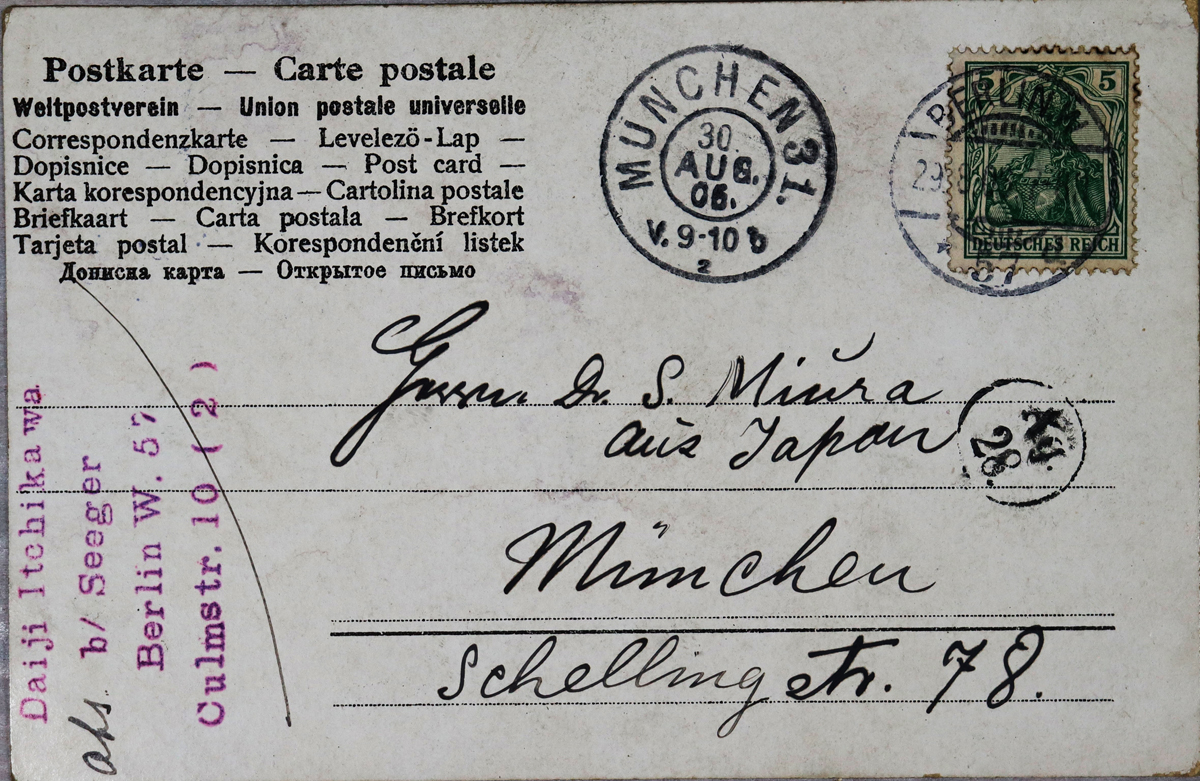 Postkarte — Carte postale
Weltpostverein — Union postale universelle
Correspondenzkarte — Levelezö-Lap —
Dopisnice — Dopisnica — Post card —
Karta korespondencyjna — Cartolina postale
Briefkaart — Carta postala — Brefkort
Tarjeta postal — Korespondenční listek
Дописна карта — Открытое письмо
MÜNCHEN 31.
30.
AUG.
06.
V. 9-10 b
2
5 5
DEUTSCHES REICH
BERLIN W
29.8.
* 57
Herrn Dr. S. Miura
aus Japan
München
Schellingstr. 78.
28.
Daiji Itchikawa
abs. b/ Seeger
Berlin W. 57
Culmstr. 10 ( 2 )